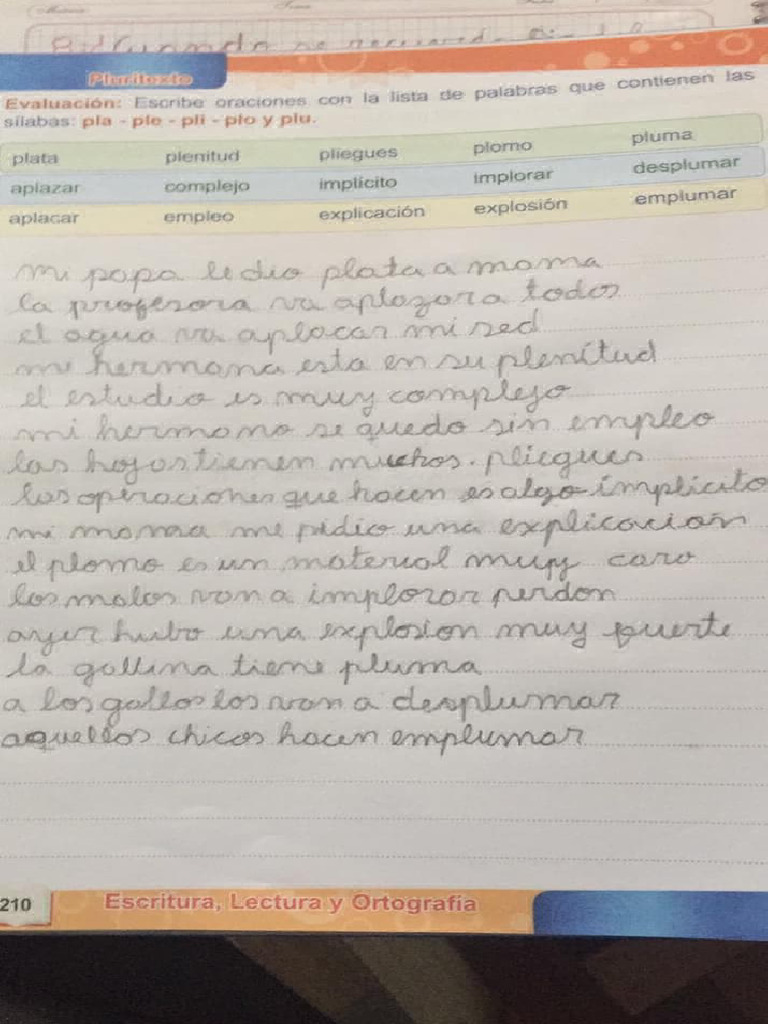 Pluritexto
Evaluación: Escribe oraciones con la lista de palabras que contienen las
sílabas: pla - ple - pli - plo y plu.
plata plenitud pliegues plomo pluma
aplazar complejo implícito implorar desplumar
aplacar empleo explicación explosión emplumar
mi papa le dio plata a mama
la profesora va aplazar a todos
el agua va aplacar mi sed
mi hermana esta en su plenitud
el estudio es muy complejo
mi hermano se quedo sin empleo
las hojas tienen muchos. pliegues
las operaciones que hacen es algo implicito
mi mama me pidio una explicación
el plomo es un material muy caro
los malos van a implorar perdon
ayer hubo una explosion muy fuerte
la gallina tiene pluma
a los gallos los van a desplumar
aquellos chicos hacen emplumar
210 Escritura, Lectura y Ortografía